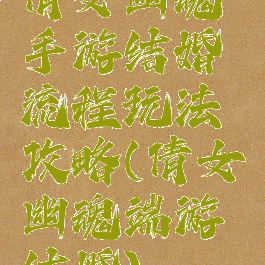 倩女幽魂
手游结婚
流程玩法
攻略(倩女
幽魂端游
结婚)